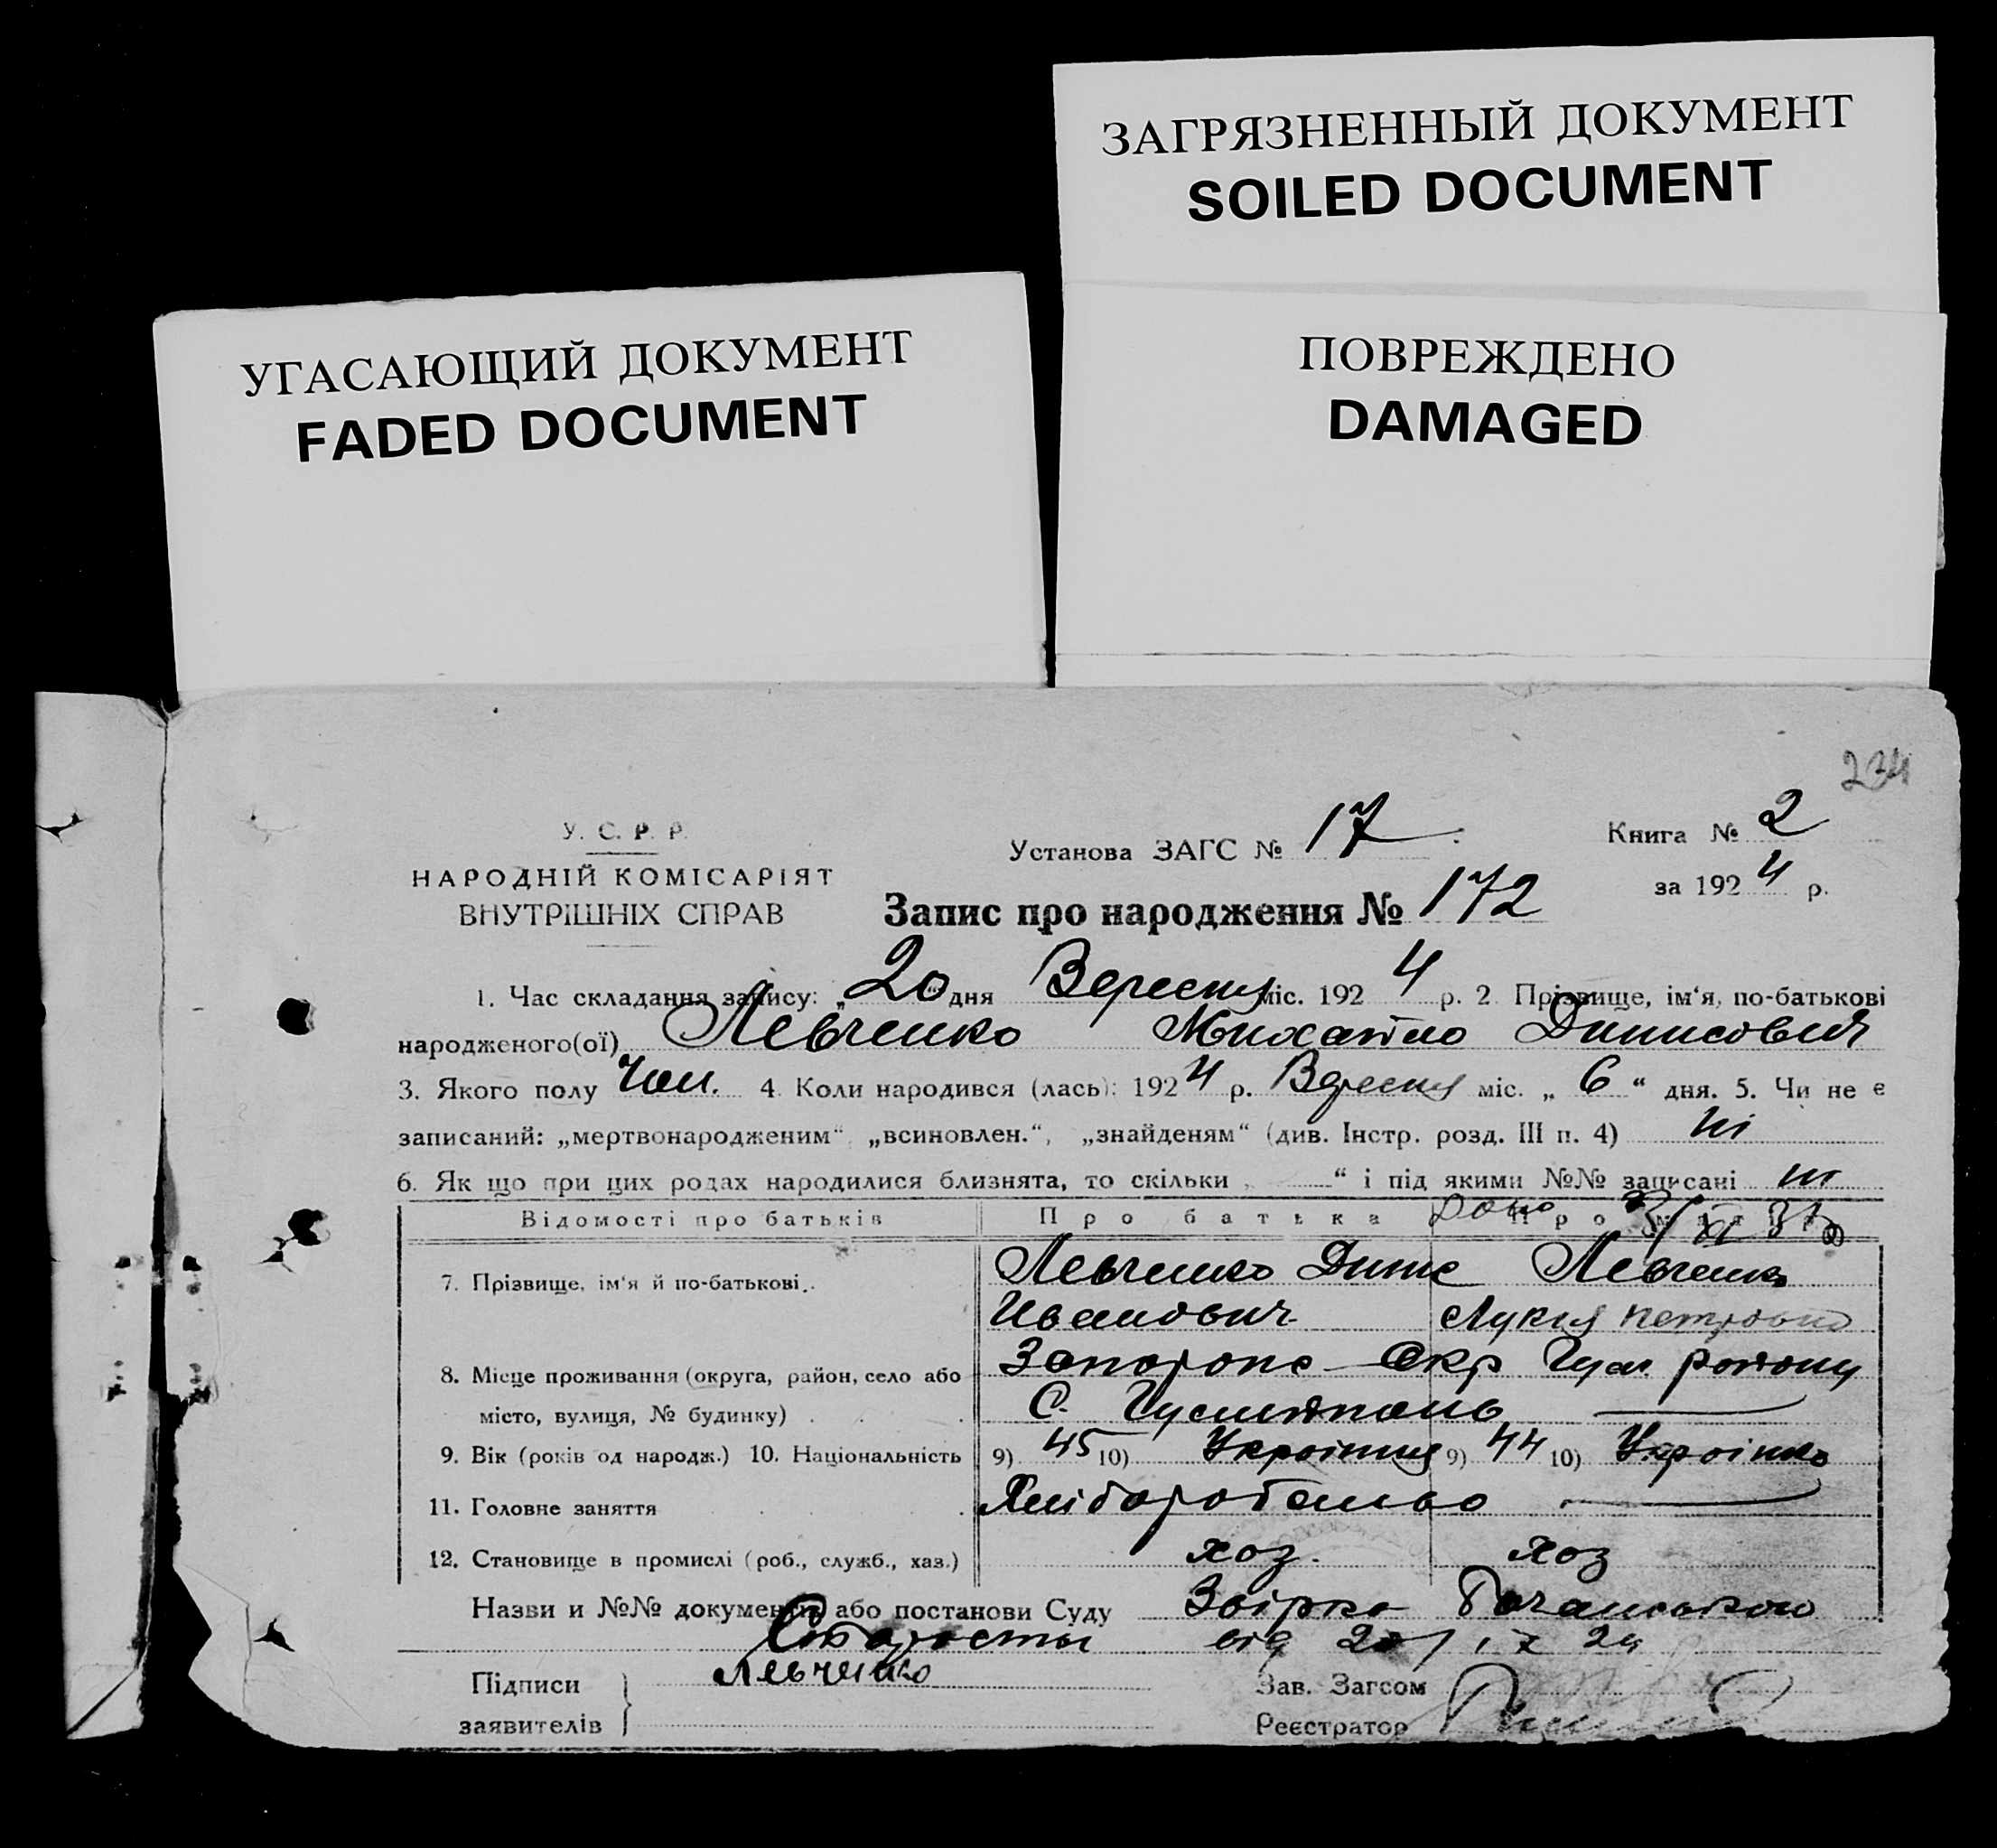 ЗАГРЯЗНЕННЫЙ ДОКУМЕНТ
SOILED DOCUMENT
УГАСАЮЩИЙ ДОКУМЕНТ
FADED DOCUMENT
ПОВРЕЖДЕНО
DAMAGED
234
У. С. Р. Р.
НАРОДНІЙ КОМІСАРІЯТ
ВНУТРІШНІХ СПРАВ
Установа ЗАГС № 17
Книга № 2
за 1924 р.
Запис про народження № 172
1. Час складання запису: „20“ дня Вересня міс. 1924 р. 2 Прізвище, ім‘я, по-батькові
народженого(ої) Левченко Михайло Динисович
3. Якого полу Чол. 4. Коли народився (лась): 1924 р. Вересня міс. „ 6 “ дня. 5. Чи не є
записаний: „мертвонародженим“ „всиновлен.“, „знайденям“ (див. Інстр. розд. III п. 4) ні
6. Як що при цих родах народилися близнята, то скільки „ “ і під якими №№ записані ні
Відомості про батьків Про батька Про
7. Прізвище, ім‘я й по-батькові. Левченко Динис Левченко
Иванович Лукія Петровна
8. Місце проживання (округа, район, село або Окр Гул. району
місто, вулиця, № будинку) С.
9. Вік (років од народж.) 10. Національність 9) 45 10) Українця 9) 44 10) Українка
11. Головне заняття Хліборобство
12. Становище в промислі (роб., служб., хаз.) хоз. хоз
Назви и №№ документів або постанови Суду
від 20/IX 24
Підписи Левченко
заявителів
Зав. Загсом
Реєстратор